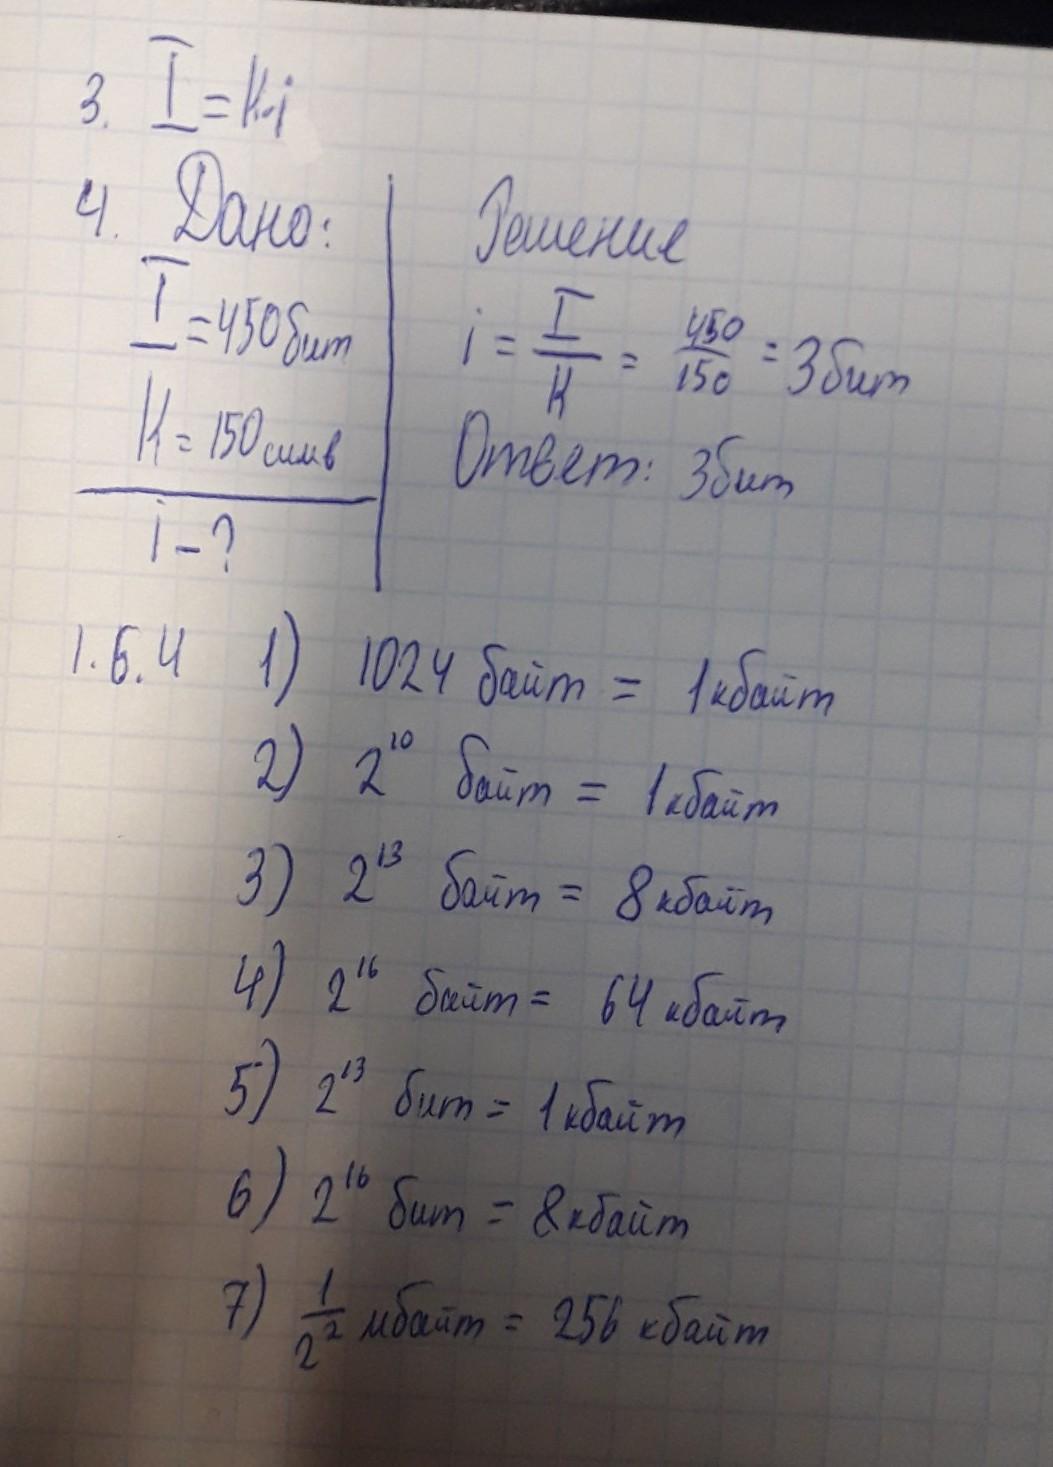 3. I = K·i
4. Дано:
I = 450 бит
K = 150 симв
i - ?
Решение
i = I/K = 450/150 = 3 бит
Ответ: 3 бит
1.6.4 1) 1024 байт = 1 кбайт
2) 2¹⁰ байт = 1 кбайт
3) 2¹³ байт = 8 кбайт
4) 2¹⁶ байт = 64 кбайт
5) 2¹³ бит = 1 кбайт
6) 2¹⁶ бит = 8 кбайт
7) 1/2² мбайт = 256 кбайт